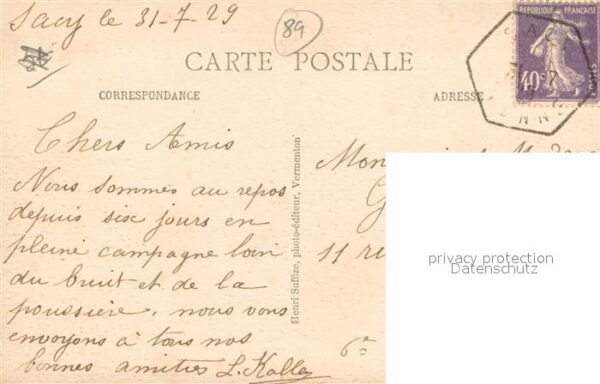 Sacy le 31-7-29
89
CARTE POSTALE
CORRESPONDANCE
ADRESSE
RÉPUBLIQUE FRANÇAISE
40c
POSTES
SACY
YONNE
Chers Amis
Nous sommes au repos
depuis six jours en
pleine campagne loin
du bruit et de la
poussière, nous vous
envoyons à tous nos
bonnes amities L. Kalley
Henri Suffize, photo-éditeur, Vermenton
11
6e
privacy protection
Datenschutz